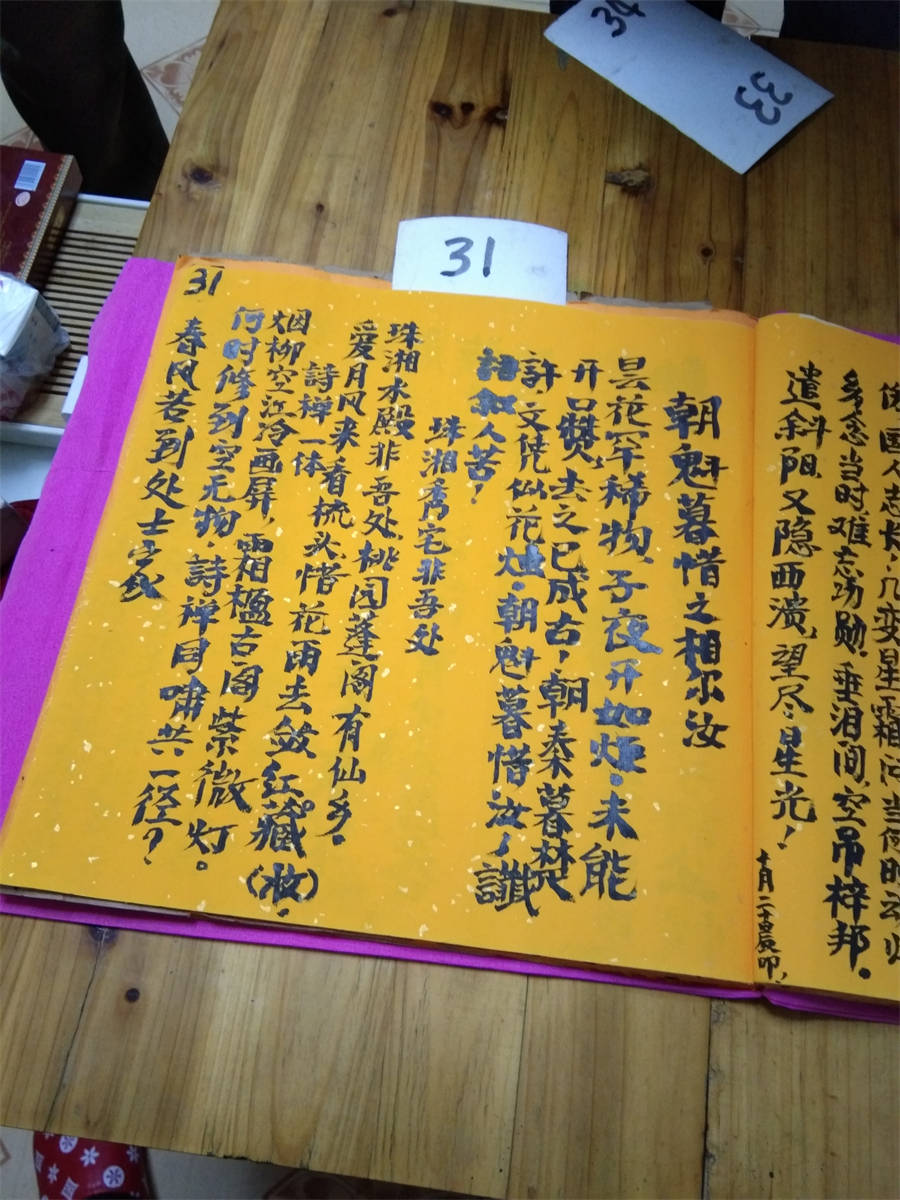 34
33
31
31
国人志长,几变星霜问当何时云归
多念当时难忘汤勋,垂泪间,空吊梓邦。
遣斜阳又隐西濆,望尽星光!
朝魁暮惜之相尔汝
昙花罕稀物,子夜开如烟,未能
开口懟,去之已成古,朝秦暮楚
許,文凭似花烛,朝魁暮惜汝,讖
人苦!
珠湘秀宅非吾处
珠湘水殿非吾处,桃园蓬阁有仙乡。
爱月风来看梳头,惜花雨去敛红藏(妆)。
詩禅一体
烟柳空江冷画屏,霜楹古阁紫微灯。
何时修到空无物,詩禅目嘯共一径?
春风若到处士